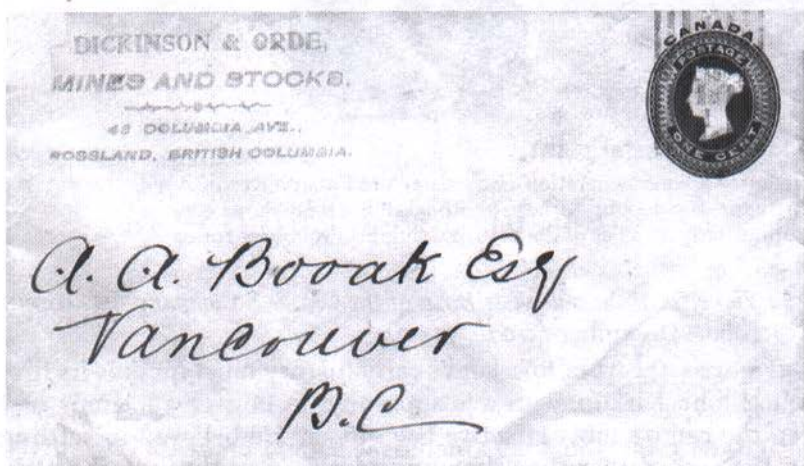 DICKINSON & ORDE,
MINES AND STOCKS.
COLUMBIA AVE.,
ROSSLAND, BRITISH COLUMBIA.
CANADA
POSTAGE
ONE CENT
A. A. Booak Esq
Vancouver
B.C